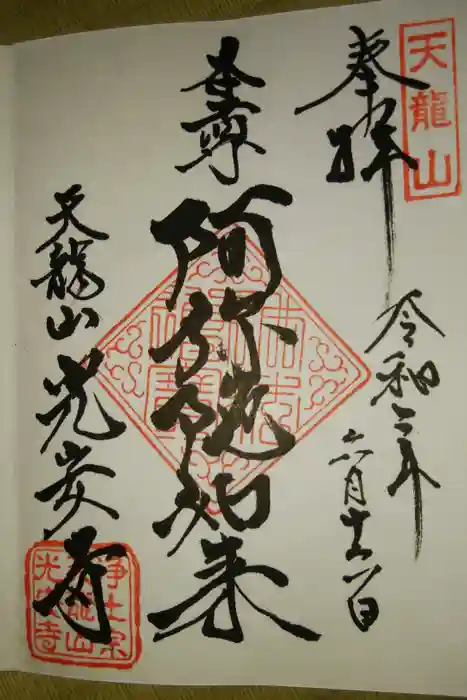 天龍山
奉拝
令和二年
六月十六日
本尊
阿弥陀如来
天龍山 光安寺
浄土宗
天龍山
光安寺